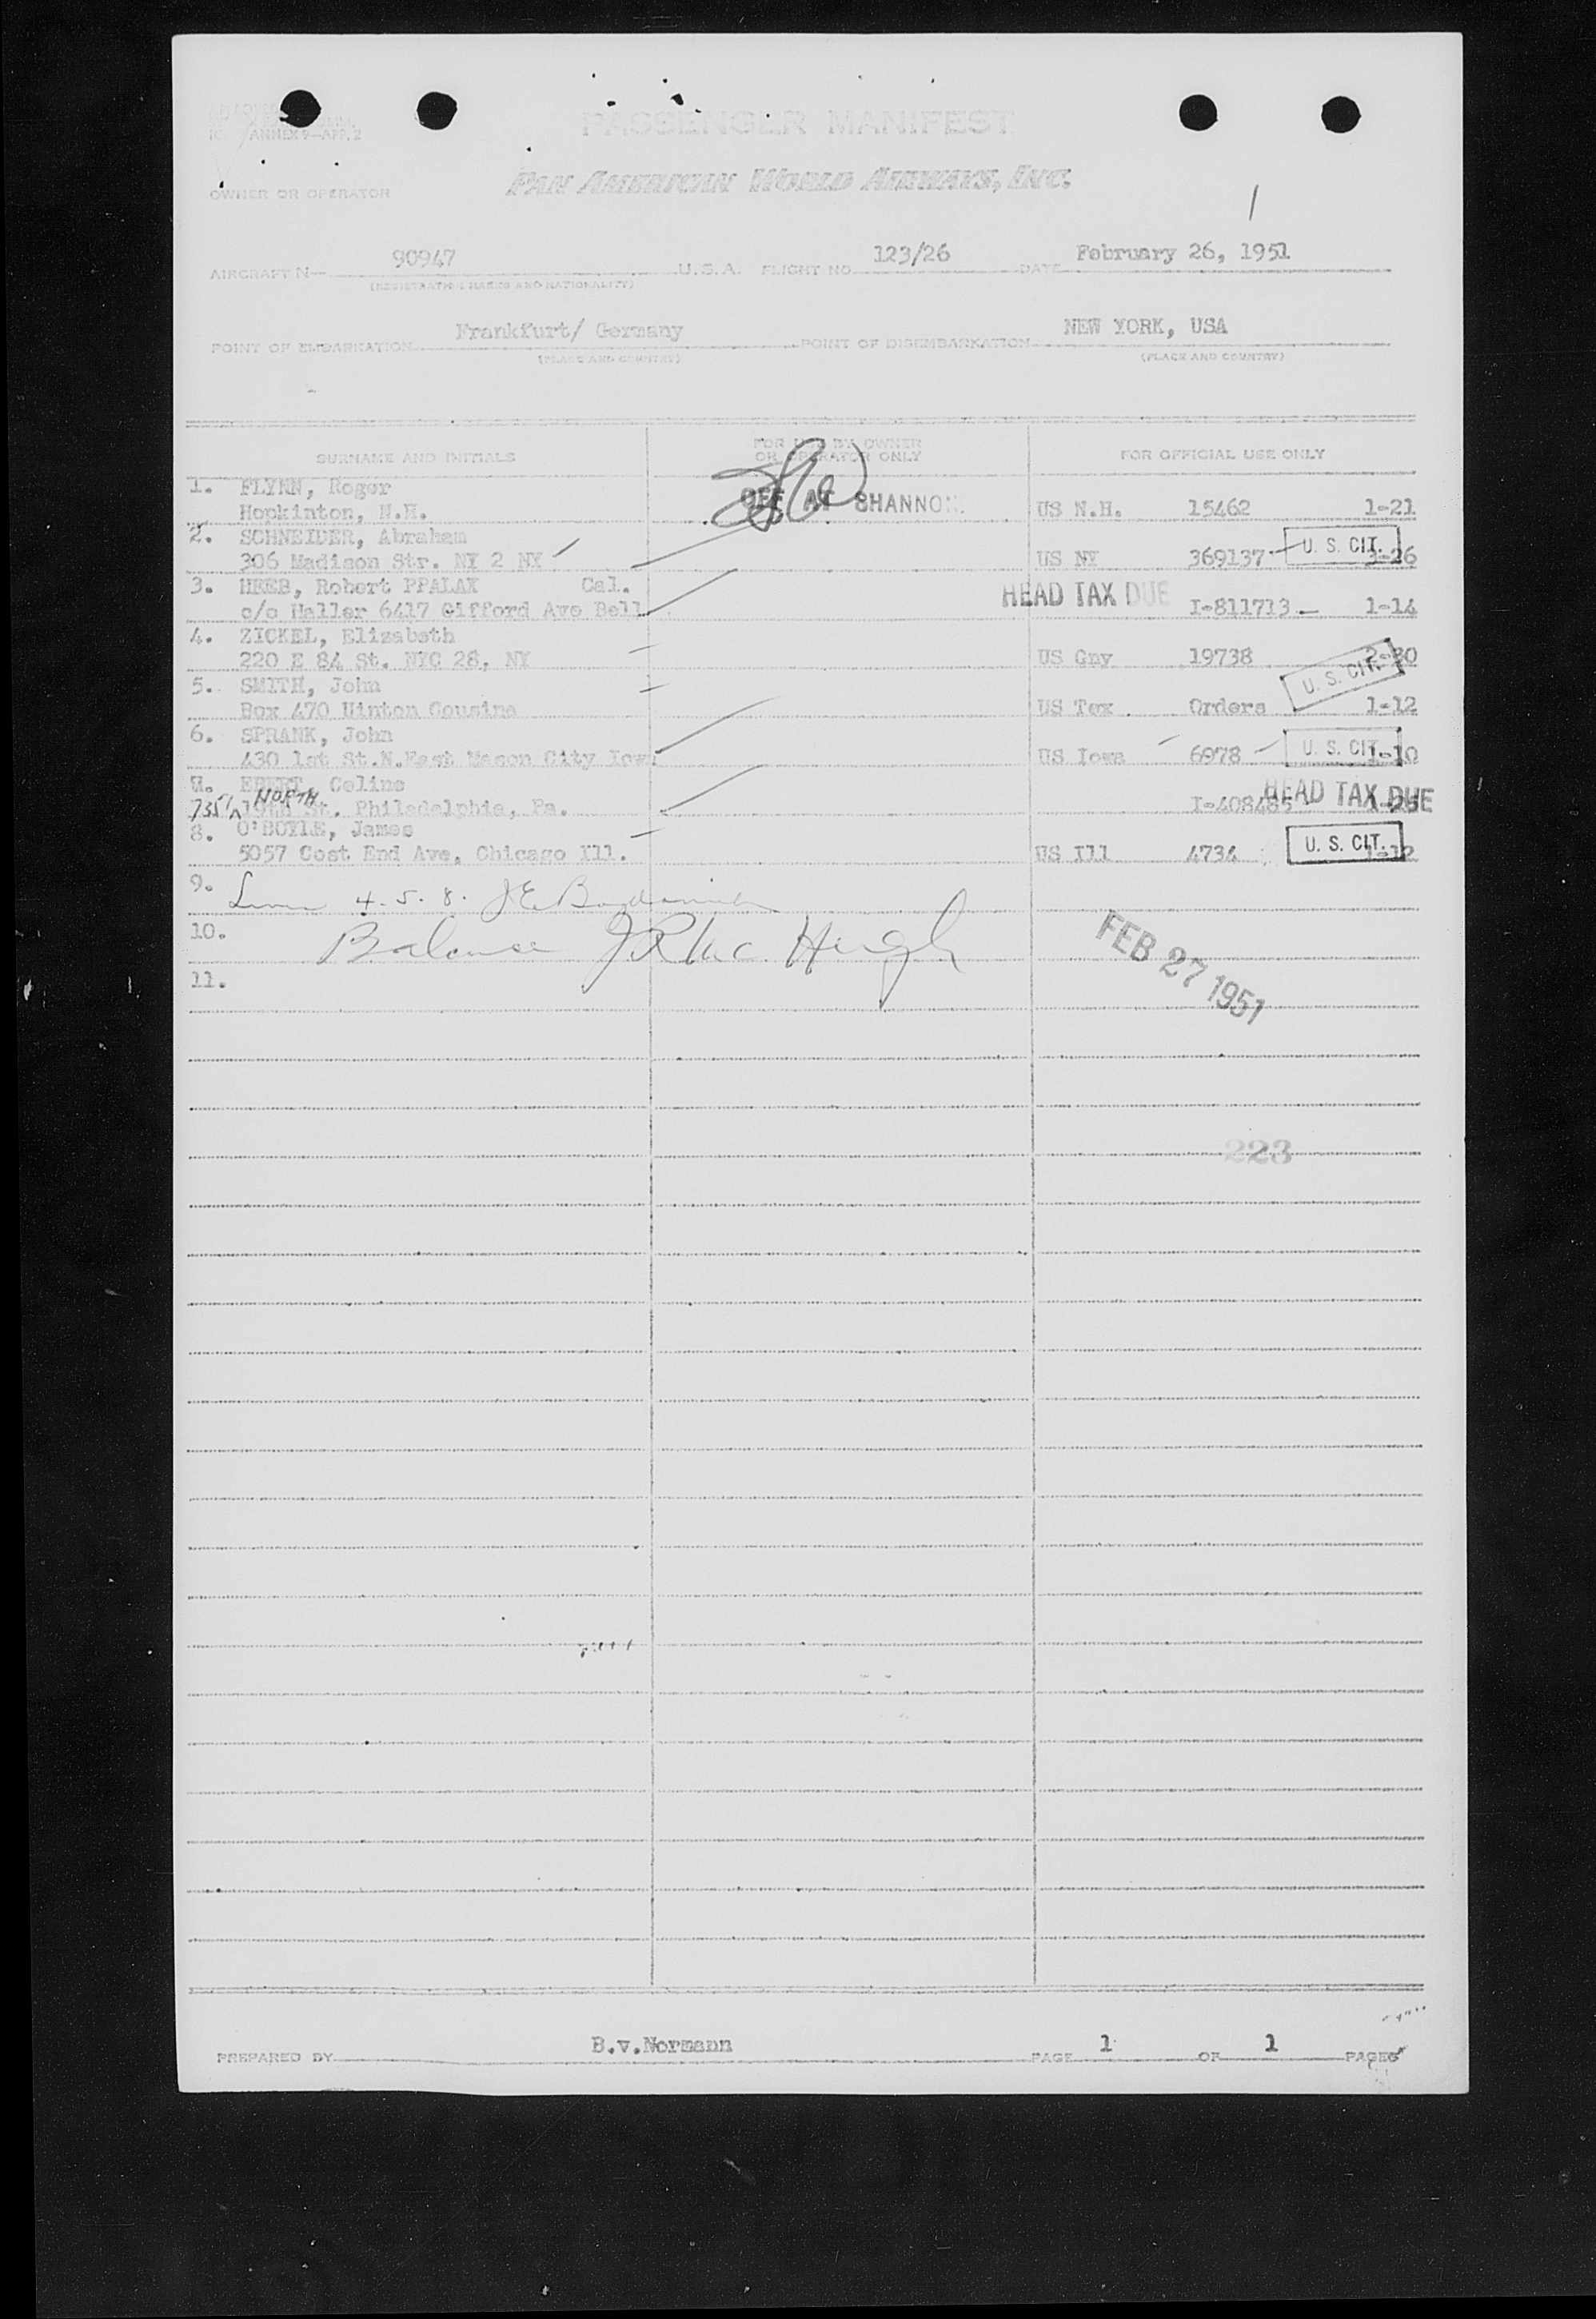 ICAO ANNEX 9—APP. 2
PASSENGER MANIFEST
OWNER OR OPERATOR PAN AMERICAN WORLD AIRWAYS, INC.
1
AIRCRAFT N— 90947 U.S.A. FLIGHT NO. 123/26 DATE February 26, 1951
(REGISTRATION MARKS AND NATIONALITY)
POINT OF EMBARKATION Frankfurt/ Germany POINT OF DISEMBARKATION NEW YORK, USA
(PLACE AND COUNTRY) (PLACE AND COUNTRY)
SURNAME AND INITIALS FOR USE BY OWNER OR OPERATOR ONLY FOR OFFICIAL USE ONLY
1. FLYNN, Roger
Hopkinton, N.H. OFF AT SHANNON. US N.H. 15462 1-21
2. SCHNEIDER, Abraham
306 Madison Str. NY 2 NY US NY 369137 U. S. CIT. 1-26
3. HEEB, Robert PPALAX Cal.
c/o Haller 6417 Gifford Ave Bell HEAD TAX DUE I-811713 1-14
4. ZICKEL, Elizabeth
220 E 84 St. NYC 28, NY US Gny 19738 2-30
5. SMITH, John U. S. CIT.
Box 470 Hinton Cousins US Tex Orders 1-12
6. SPRANK, John
430 1st St.N.East Mason City Iowa US Iowa 6978 U. S. CIT. 1-10
7. EBERT, Celine
7351 NORTH 19th St. Philadelphia, Pa. I-408485 HEAD TAX DUE
8. O'BOYLE, James
5057 Cost End Ave, Chicago Ill. US Ill 4734 U. S. CIT. 1-12
9. 4. 5. 8.
10. Balance J R Mc Hugh
11. FEB 27 1951
223
PREPARED BY B.v.Normann PAGE 1 OF 1 PAGES